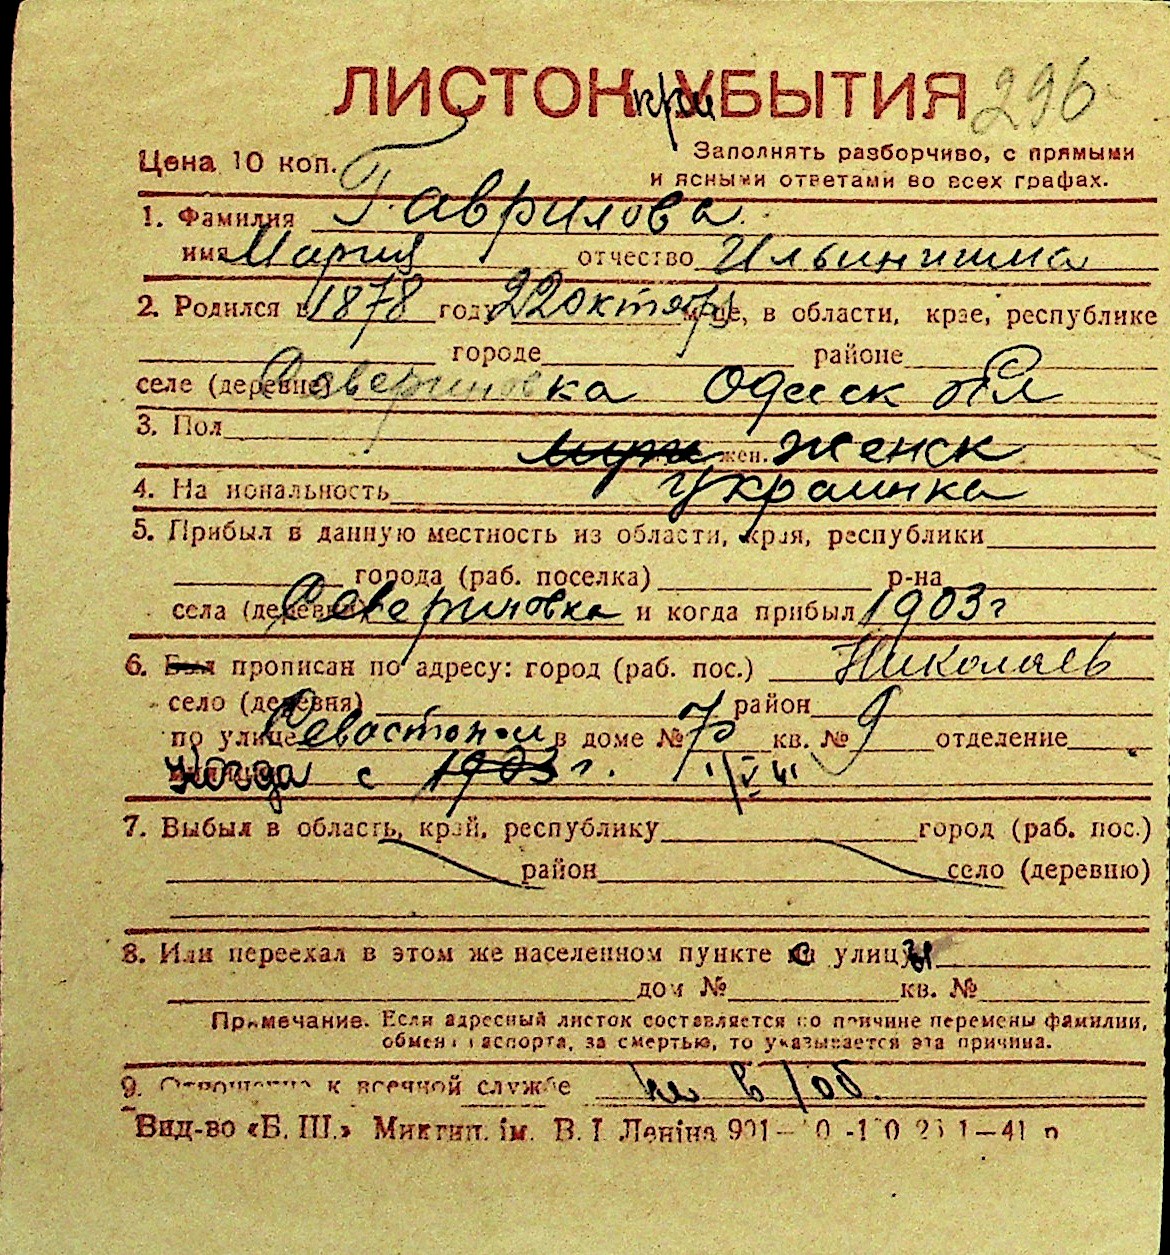 ЛИСТОК при УБЫТИЯ 296
Цена 10 коп.
Заполнять разборчиво, с прямыми
и ясными ответами во всех графах.
1. Фамилия Гаврилова
имя Мария отчество Ильинишна
2. Родился в 1878 году 22 октябр м-це, в области, крае, республике
городе районе
селе (деревне) Севериновка Одесск обл
3. Пол муж жен. женск
4. Национальность украинка
5. Прибыл в данную местность из области, края, республики
города (раб. поселка) р-на
села (деревни) Севериновка и когда прибыл 1903 г
6. Был прописан по адресу: город (раб. пос.) Николаев
село (деревня) район
по улице Севастопол в доме № 75 кв. № 9 отделение
Когда с 1903 г. 1/V 41
7. Выбыл в область, край, республику город (раб. пос.)
район село (деревню)
8. Или переехал в этом же населенном пункте с улицы
дом № кв. №
Примечание. Если адресный листок составляется по причине перемены фамилии,
обмена паспорта, за смертью, то указывается эта причина.
9. Отношение к военной службе не в/об.
Вид-во «Б. Ш.» Миктип. ім. В. І. Леніна